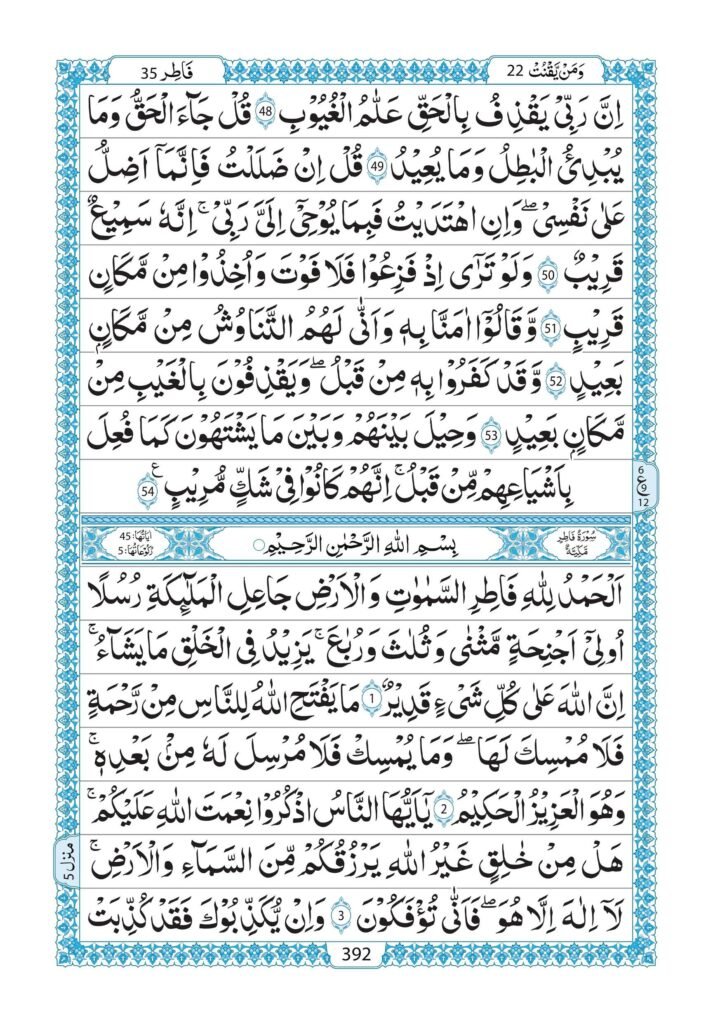 وَمَنْ يَّقْنُتْ 22
فَاطِر 35
اِنَّ رَبِّيْ يَقْذِفُ بِالْحَقِّ ۚ عَلَّامُ الْغُيُوْبِ 48 قُلْ جَآءَ الْحَقُّ وَمَا
يُبْدِئُ الْبَاطِلُ وَمَا يُعِيْدُ 49 قُلْ اِنْ ضَلَلْتُ فَاِنَّمَاۤ اَضِلُّ
عَلٰى نَفْسِيْ ۖ وَاِنِ اهْتَدَيْتُ فَبِمَا يُوْحِيْۤ اِلَيَّ رَبِّيْ ۚ اِنَّهٗ سَمِيْعٌ
قَرِيْبٌ 50 وَلَوْ تَرٰٓى اِذْ فَزِعُوْا فَلَا فَوْتَ وَاُخِذُوْا مِنْ مَّكَانٍ
قَرِيْبٍ 51 وَّقَالُوْۤا اٰمَنَّا بِهٖ ۚ وَاَنّٰى لَهُمُ التَّنَاوُشُ مِنْ مَّكَانٍۭ
بَعِيْدٍ 52 وَّقَدْ كَفَرُوْا بِهٖ مِنْ قَبْلُ ۖ وَيَقْذِفُوْنَ بِالْغَيْبِ مِنْ
مَّكَانٍۭ بَعِيْدٍ 53 وَحِيْلَ بَيْنَهُمْ وَبَيْنَ مَا يَشْتَهُوْنَ كَمَا فُعِلَ
بِاَشْيَاعِهِمْ مِّنْ قَبْلُ ۚ اِنَّهُمْ كَانُوْا فِيْ شَكٍّ مُّرِيْبٍ ع 54
6
ع 9
12
سُوْرَةُ فَاطِرٍ مَكِّيَّةٌ
بِسْمِ اللّٰهِ الرَّحْمٰنِ الرَّحِيْمِ
اٰيَاتُهَا: 45
رُكُوْعَاتُهَا: 5
اَلْحَمْدُ لِلّٰهِ فَاطِرِ السَّمٰوٰتِ وَالْاَرْضِ جَاعِلِ الْمَلٰٓئِكَةِ رُسُلًا
اُولِيْۤ اَجْنِحَةٍ مَّثْنٰى وَثُلٰثَ وَرُبٰعَ ۚ يَزِيْدُ فِى الْخَلْقِ مَا يَشَآءُ ۚ
اِنَّ اللّٰهَ عَلٰى كُلِّ شَيْءٍ قَدِيْرٌ 1 مَا يَفْتَحِ اللّٰهُ لِلنَّاسِ مِنْ رَّحْمَةٍ
فَلَا مُمْسِكَ لَهَا ۖ وَمَا يُمْسِكْ فَلَا مُرْسِلَ لَهٗ مِنْۢ بَعْدِهٖ ۚ
وَهُوَ الْعَزِيْزُ الْحَكِيْمُ 2 يٰۤاَيُّهَا النَّاسُ اذْكُرُوْا نِعْمَتَ اللّٰهِ عَلَيْكُمْ ۚ
هَلْ مِنْ خَالِقٍ غَيْرُ اللّٰهِ يَرْزُقُكُمْ مِّنَ السَّمَآءِ وَالْاَرْضِ ۚ
منزل 5
لَاۤ اِلٰهَ اِلَّا هُوَ ۖ فَاَنّٰى تُؤْفَكُوْنَ 3 وَاِنْ يُّكَذِّبُوْكَ فَقَدْ كُذِّبَتْ
392